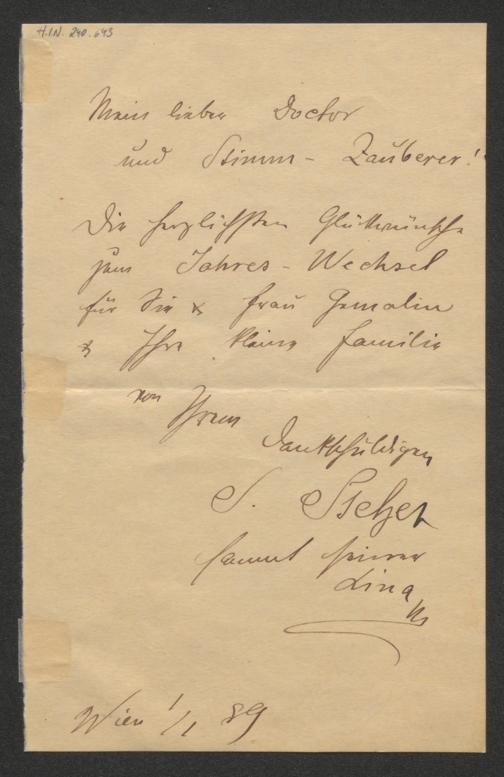 H.I.N. 240.643
Mein lieber Doctor
und Stimm - Zauberer!
Die herzlichsten Glückwünsche
zum Jahres - Wechsel
für Sie & Frau Gemalin
& Ihre kleine Familie
von Ihrem
dankschuldigen
S.
sammt seiner
Lina
Wien 1/1 89